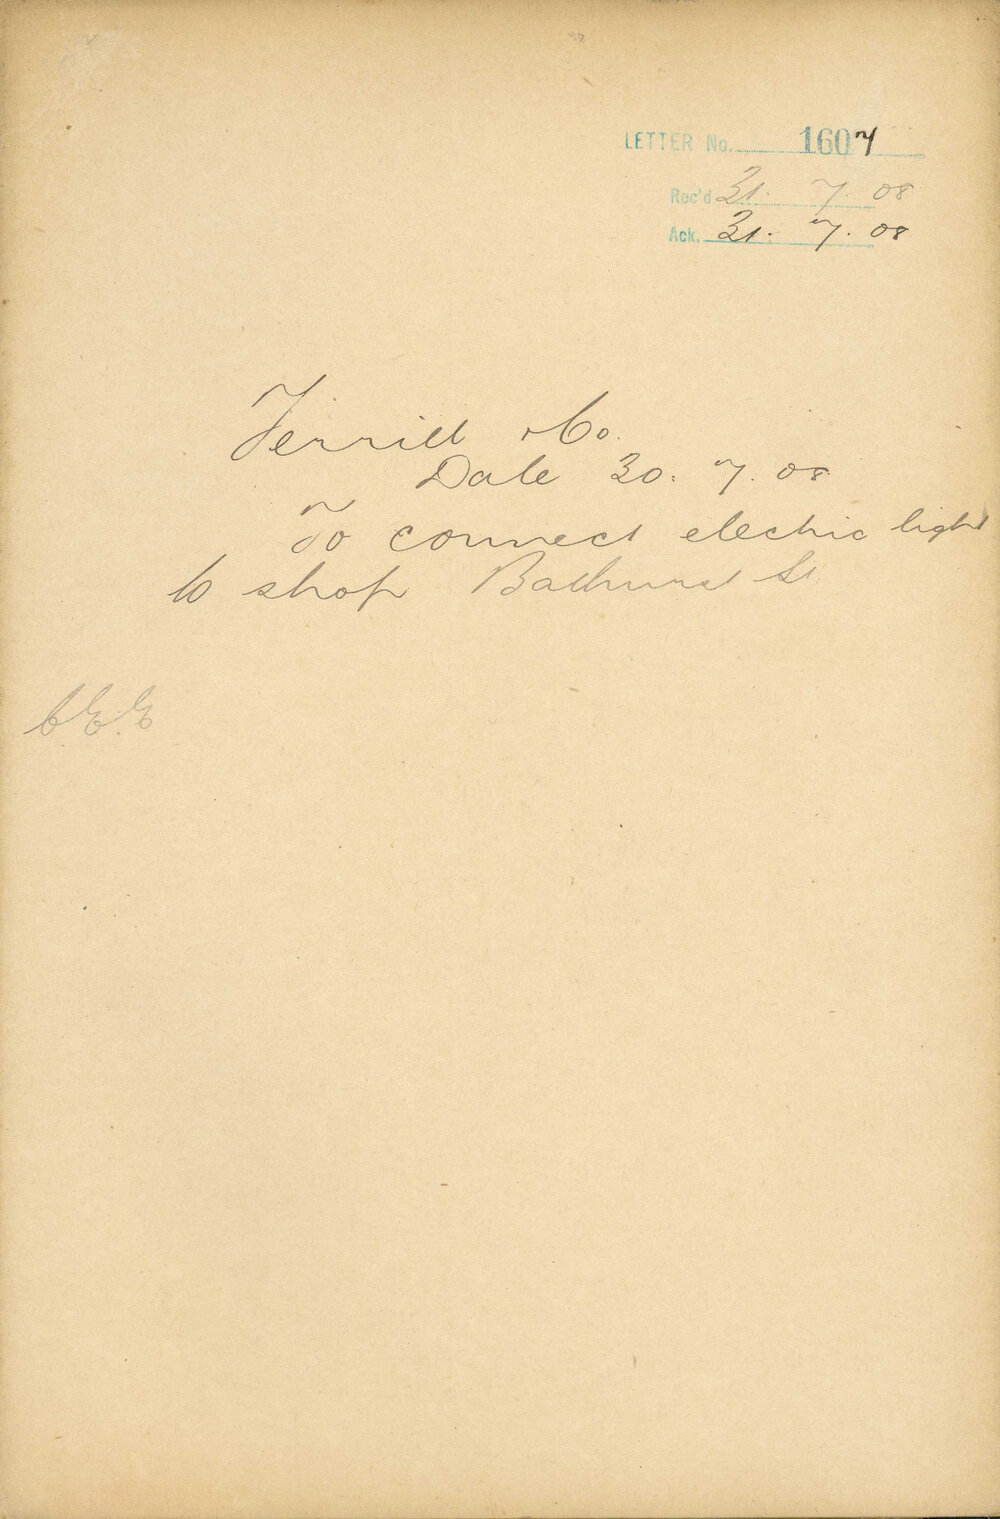 LETTER No. 1607
Rec'd 31. 7. 08
Ack. 31. 7. 08
Terrill & Co.
Date 30. 7. 08
To connect electric light
to shop Bathurst St
C.E.E